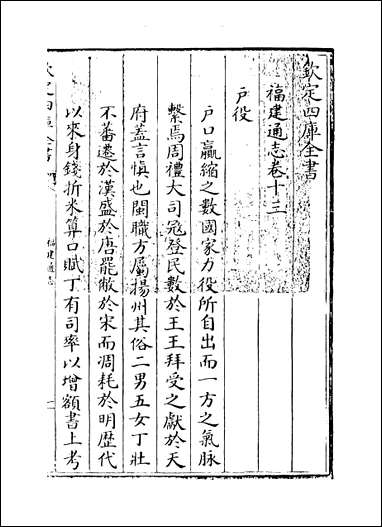 欽定四庫全書
福建通志卷十三
戶役
戶口贏縮之數國家力役所自出而一方之氣脉
繫焉周禮大司冦登民數於王王拜受之獻於天
府盖言慎也閩職方屬揚州其俗二男五女丁壯
不蕃遷於漢盛於唐罷敝於宋而凋耗於明歴代
以來身錢折米算口賦丁有司率以增額書上考
欽定四庫全書
福建通志
一